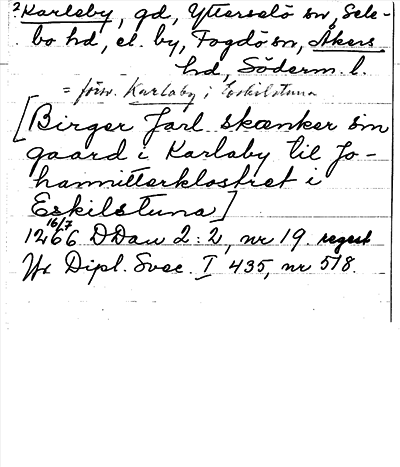 ? Karlaby, gd, Ytterselö sn, Sele-
bo hd, el. by, Fogdö sn, Åkers
hd, Söderm. l.
= försv. Karlaby i Eskilstuna
[Birger Jarl skænker sin
gaard i Karlaby til Jo-
hannitterklostret i
Eskilstuna]
16/7
1266 D Dan 2:2, nr 19. regest
Yr Dipl. Svec. I 435, nr 518.